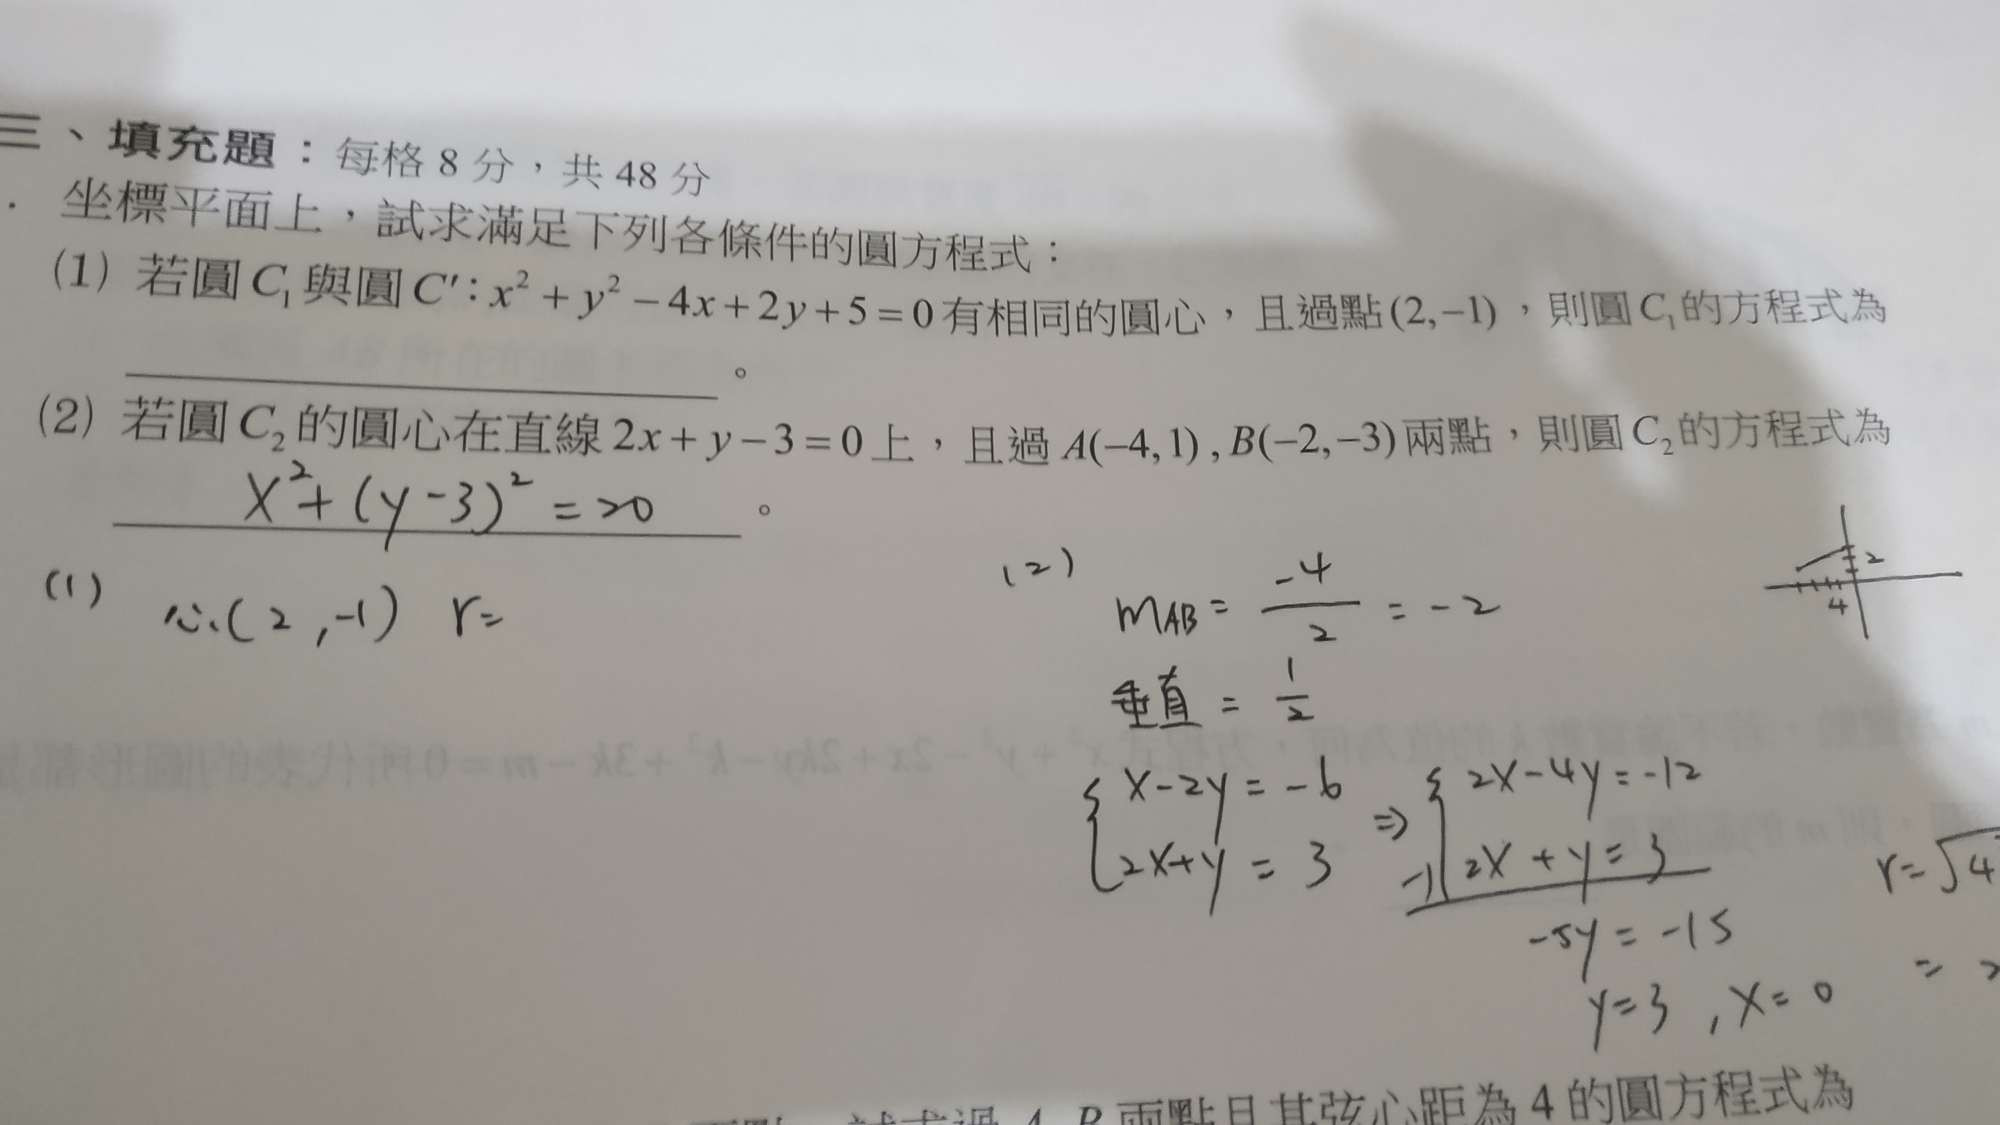 三、填充題：每格 8 分，共 48 分
. 坐標平面上，試求滿足下列各條件的圓方程式：
(1) 若圓 C₁ 與圓 C′: x² + y² − 4x + 2y + 5 = 0 有相同的圓心，且過點 (2, −1)，則圓 C₁ 的方程式為
。
(2) 若圓 C₂ 的圓心在直線 2x + y − 3 = 0 上，且過 A(−4, 1) , B(−2, −3) 兩點，則圓 C₂ 的方程式為
x² + (y − 3)² = 20 。
(1) 心:(2, −1) r=
(2) mAB = −4/2 = −2
垂直 = 1/2
{ x − 2y = −6 ⇒ { 2x − 4y = −12
2x + y = 3 −) 2x + y = 3
−5y = −15
y = 3 , x = 0
r = √4
=
2
4
A, B 兩點且其弦心距為 4 的圓方程式為